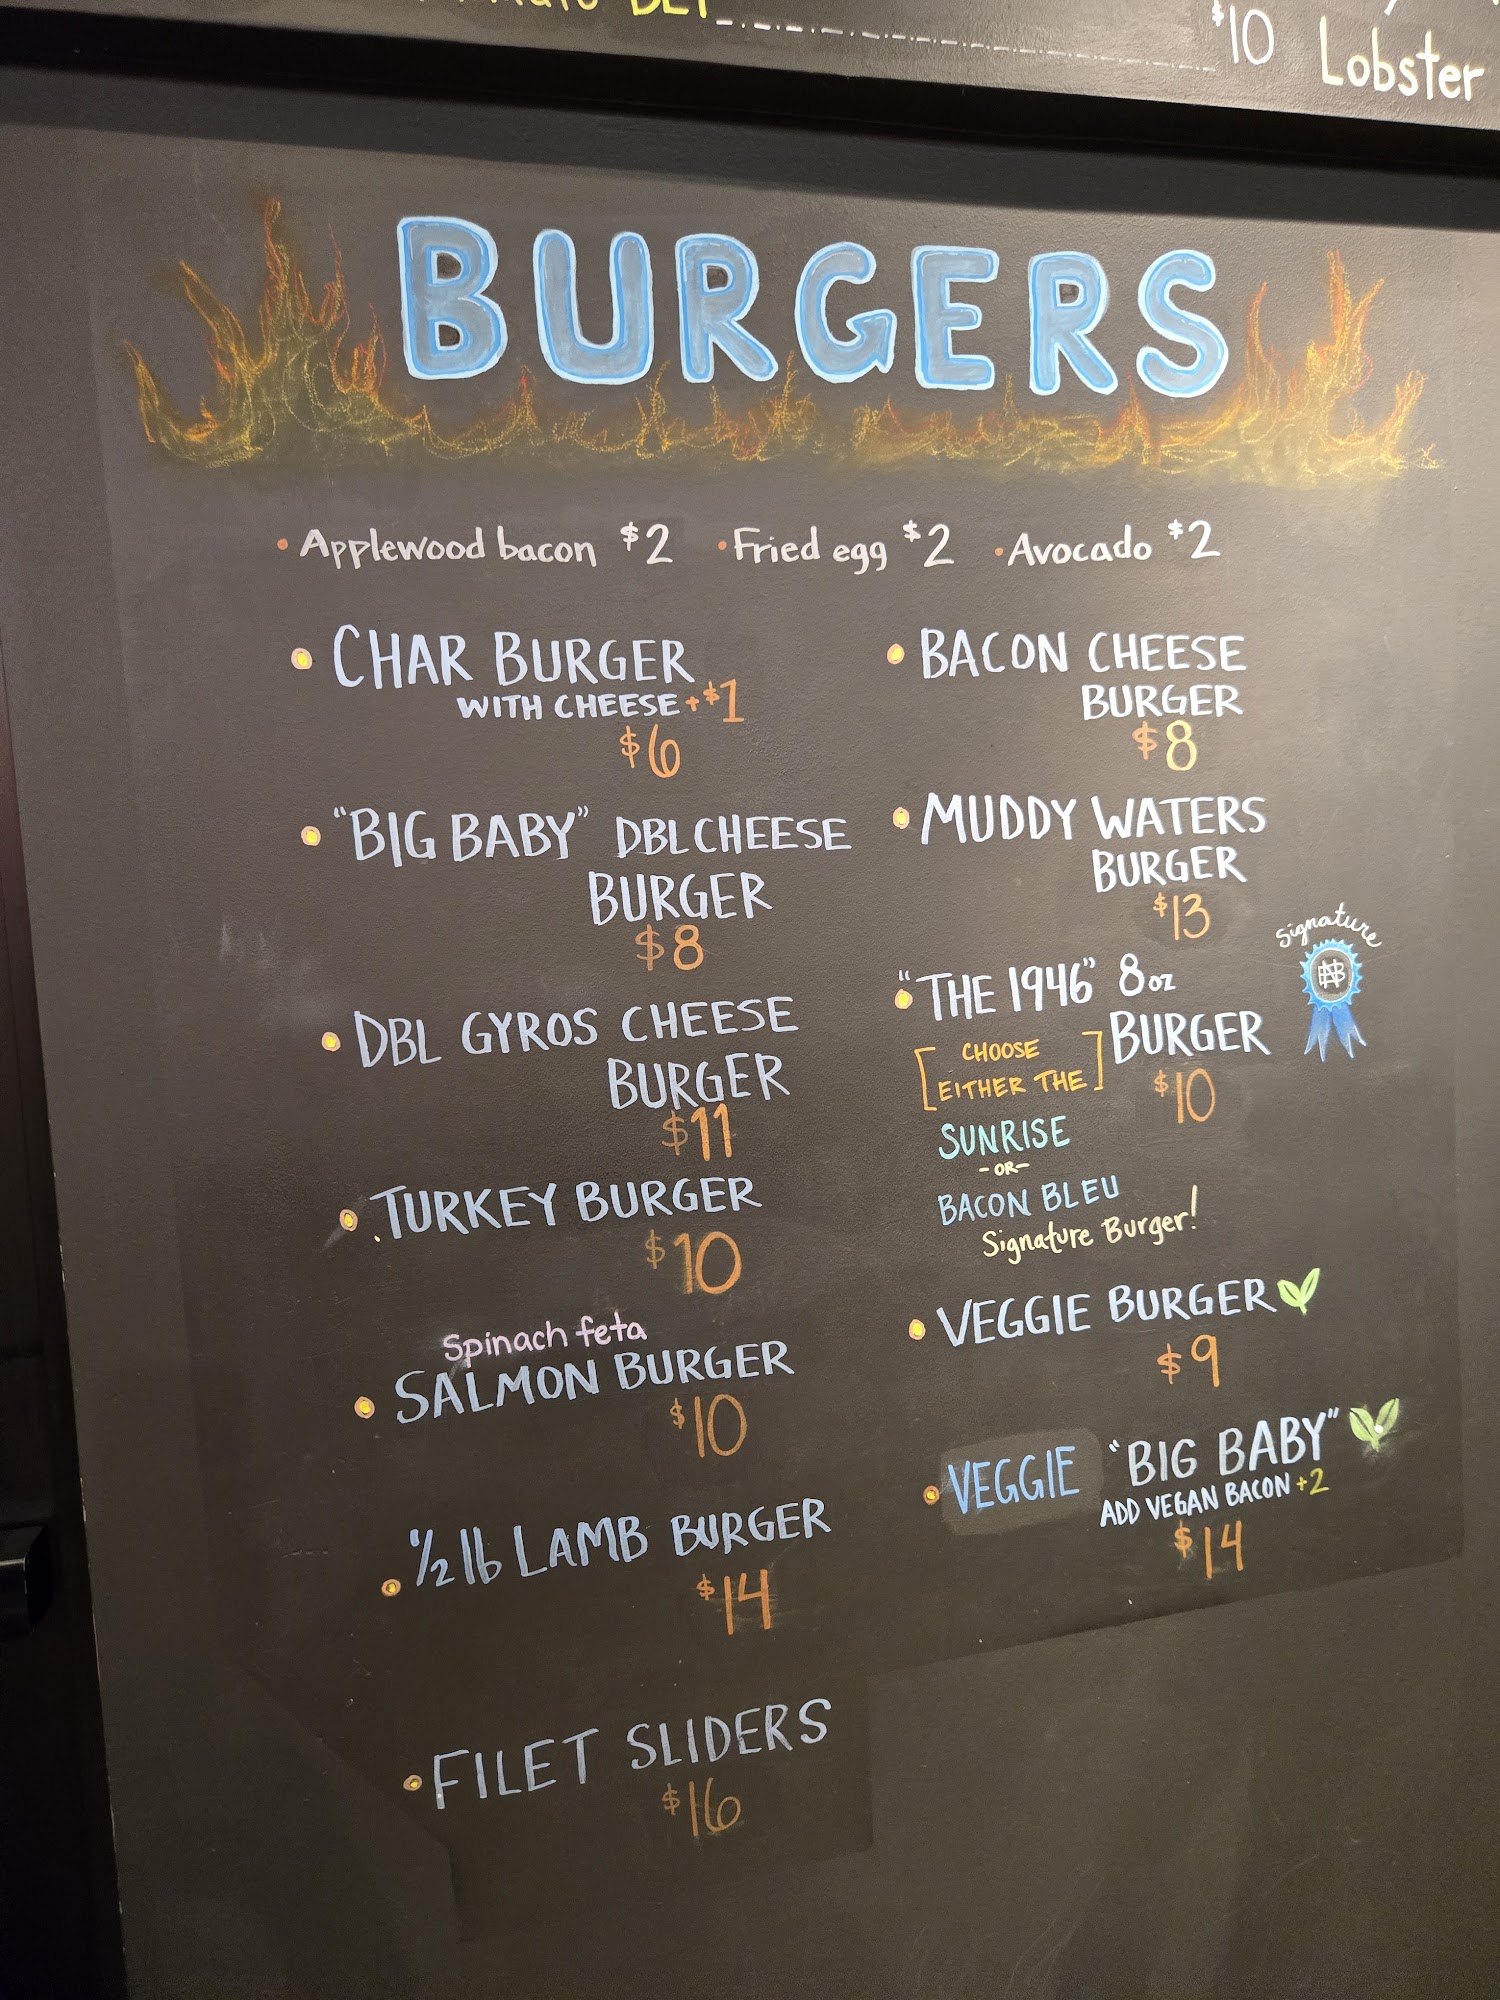 $10 Lobster
BURGERS
• Applewood bacon $2 • Fried egg $2 • Avocado $2
• CHAR BURGER
WITH CHEESE +$1
$6
• "BIG BABY" DBL CHEESE
BURGER
$8
• DBL GYROS CHEESE
BURGER
$11
• TURKEY BURGER
$10
Spinach feta
• SALMON BURGER
$10
• 1/2 lb LAMB BURGER
$14
• FILET SLIDERS
$16
• BACON CHEESE
BURGER
$8
• MUDDY WATERS
BURGER
$13
Signature
• "THE 1946" 8oz
BURGER
$10
[CHOOSE
EITHER THE]
SUNRISE
-OR-
BACON BLEU
Signature Burger!
• VEGGIE BURGER
$9
• VEGGIE "BIG BABY"
ADD VEGAN BACON +2
$14